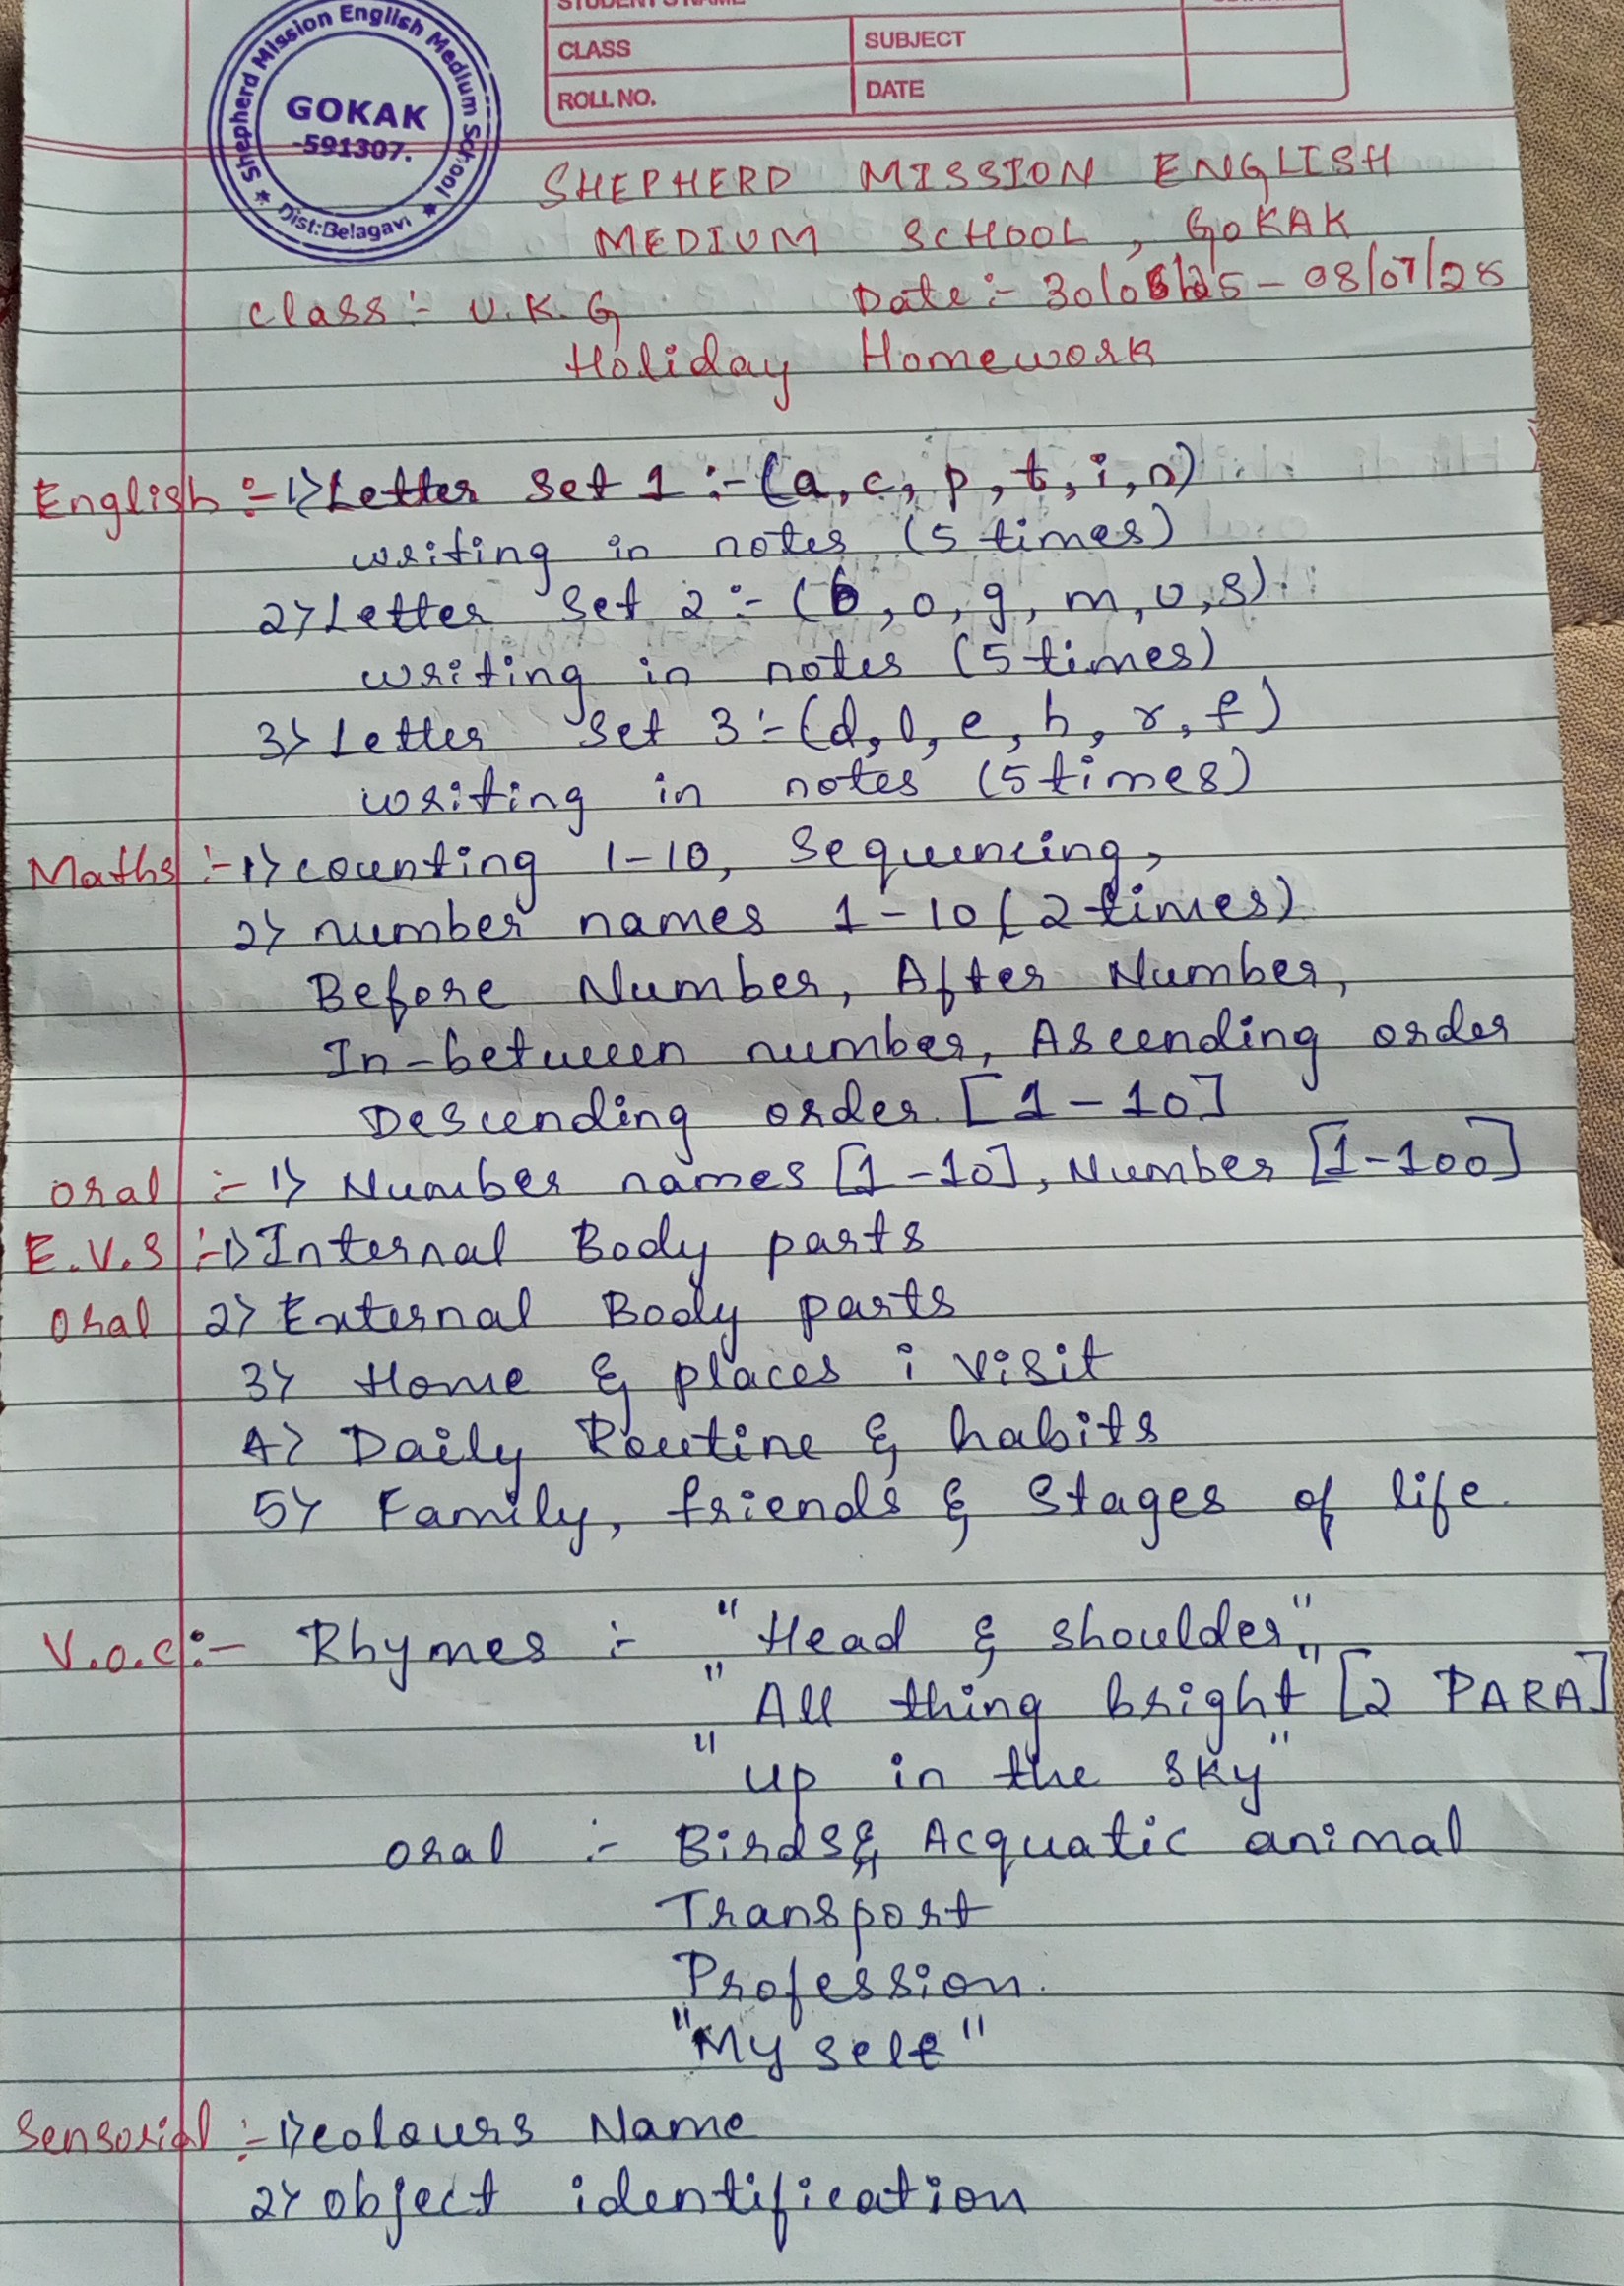 Shepherd Mission English Medium School
GOKAK
-591307.
★ Dist:Belagavi ★
STUDENT'S NAME
CLASS
SUBJECT
ROLL NO.
DATE
SHEPHERD MISSION ENGLISH
MEDIUM SCHOOL, GOKAK
Class:- U.K.G Date:- 30/06/25 - 08/07/25
Holiday Homework
English :- 1> Letter Set 1 :- (a, c, p, t, i, n)
writing in notes (5 times)
2> Letter Set 2 :- (b, o, g, m, u, s)
writing in notes (5 times)
3> Letter Set 3 :- (d, l, e, h, r, f)
writing in notes (5 times)
Maths :- 1> counting 1-10, Sequencing,
2> number names 1-10 (2 times)
Before Number, After Number,
In-between number, Ascending order
Descending order. [1-10]
Oral :- 1> Number names [1-10], Number [1-100]
E.V.S :- 1> Internal Body parts
Oral 2> External Body parts
3> Home & places i visit
4> Daily Routine & habits
5> Family, friends & Stages of life.
V.o.c :- Rhymes :- "Head & shoulder"
"All thing bright" [2 PARA]
"up in the sky"
oral :- Birds & Acquatic animal
Transport
Profession.
"My self"
Sensorial :- 1> colours Name
2> object identification